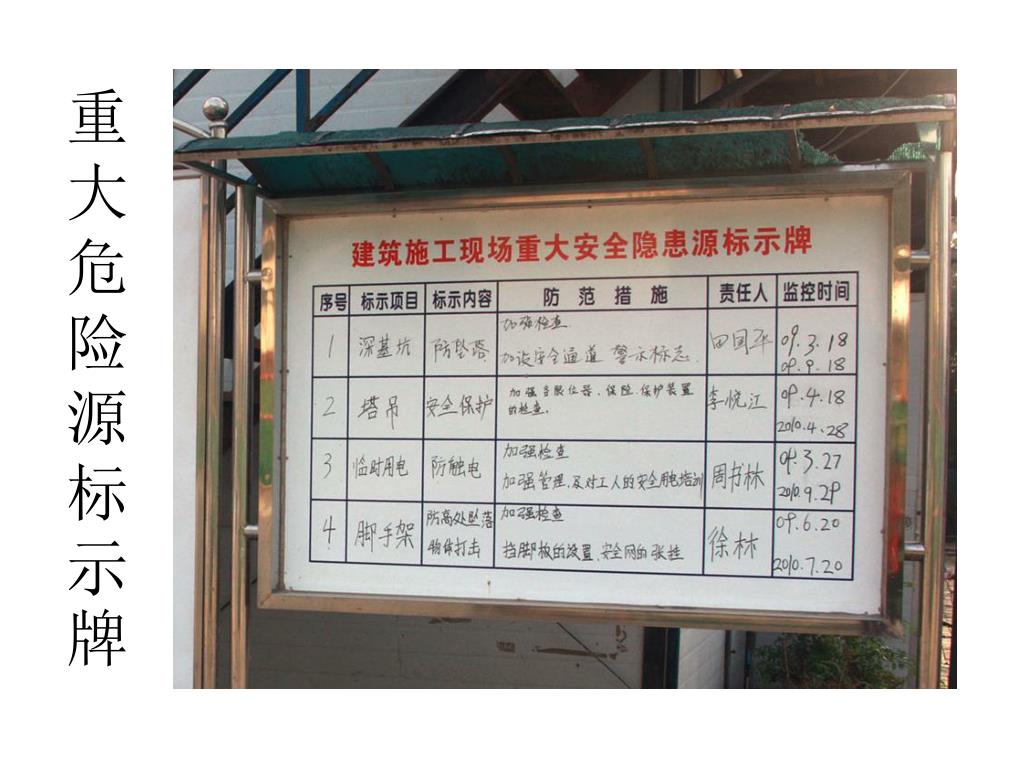 重大危险源标示牌
建筑施工现场重大安全隐患源标示牌
序号 标示项目 标示内容 防范措施 责任人 监控时间
1 深基坑 防坠落 加强检查 加设安全通道 警示标志. 田国平 09.3.18 09.9.18
2 塔吊 安全保护 加强各限位器、保险 保护装置的检查。 李悦江 09.4.18 2010.4.28
3 临时用电 防触电 加强检查 加强管理,及对工人的安全用电培训 周书林 09.3.27 2010.9.29
4 脚手架 防高处坠落 物体打击 加强检查 挡脚板的设置、安全网的张挂 徐林 09.6.20 2010.7.20